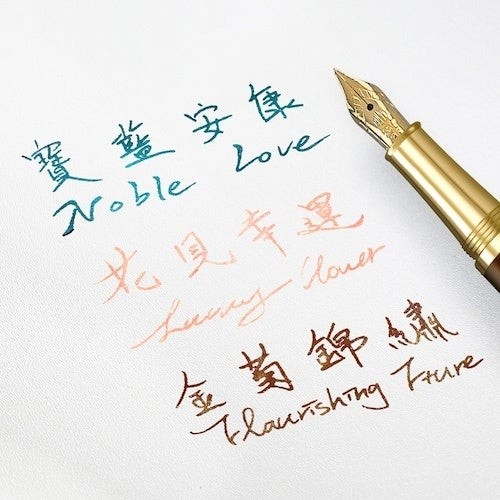 寶藍安康
Noble Love
花見幸運
Luxury Clover
金菊錦繡
Flourishing Fture